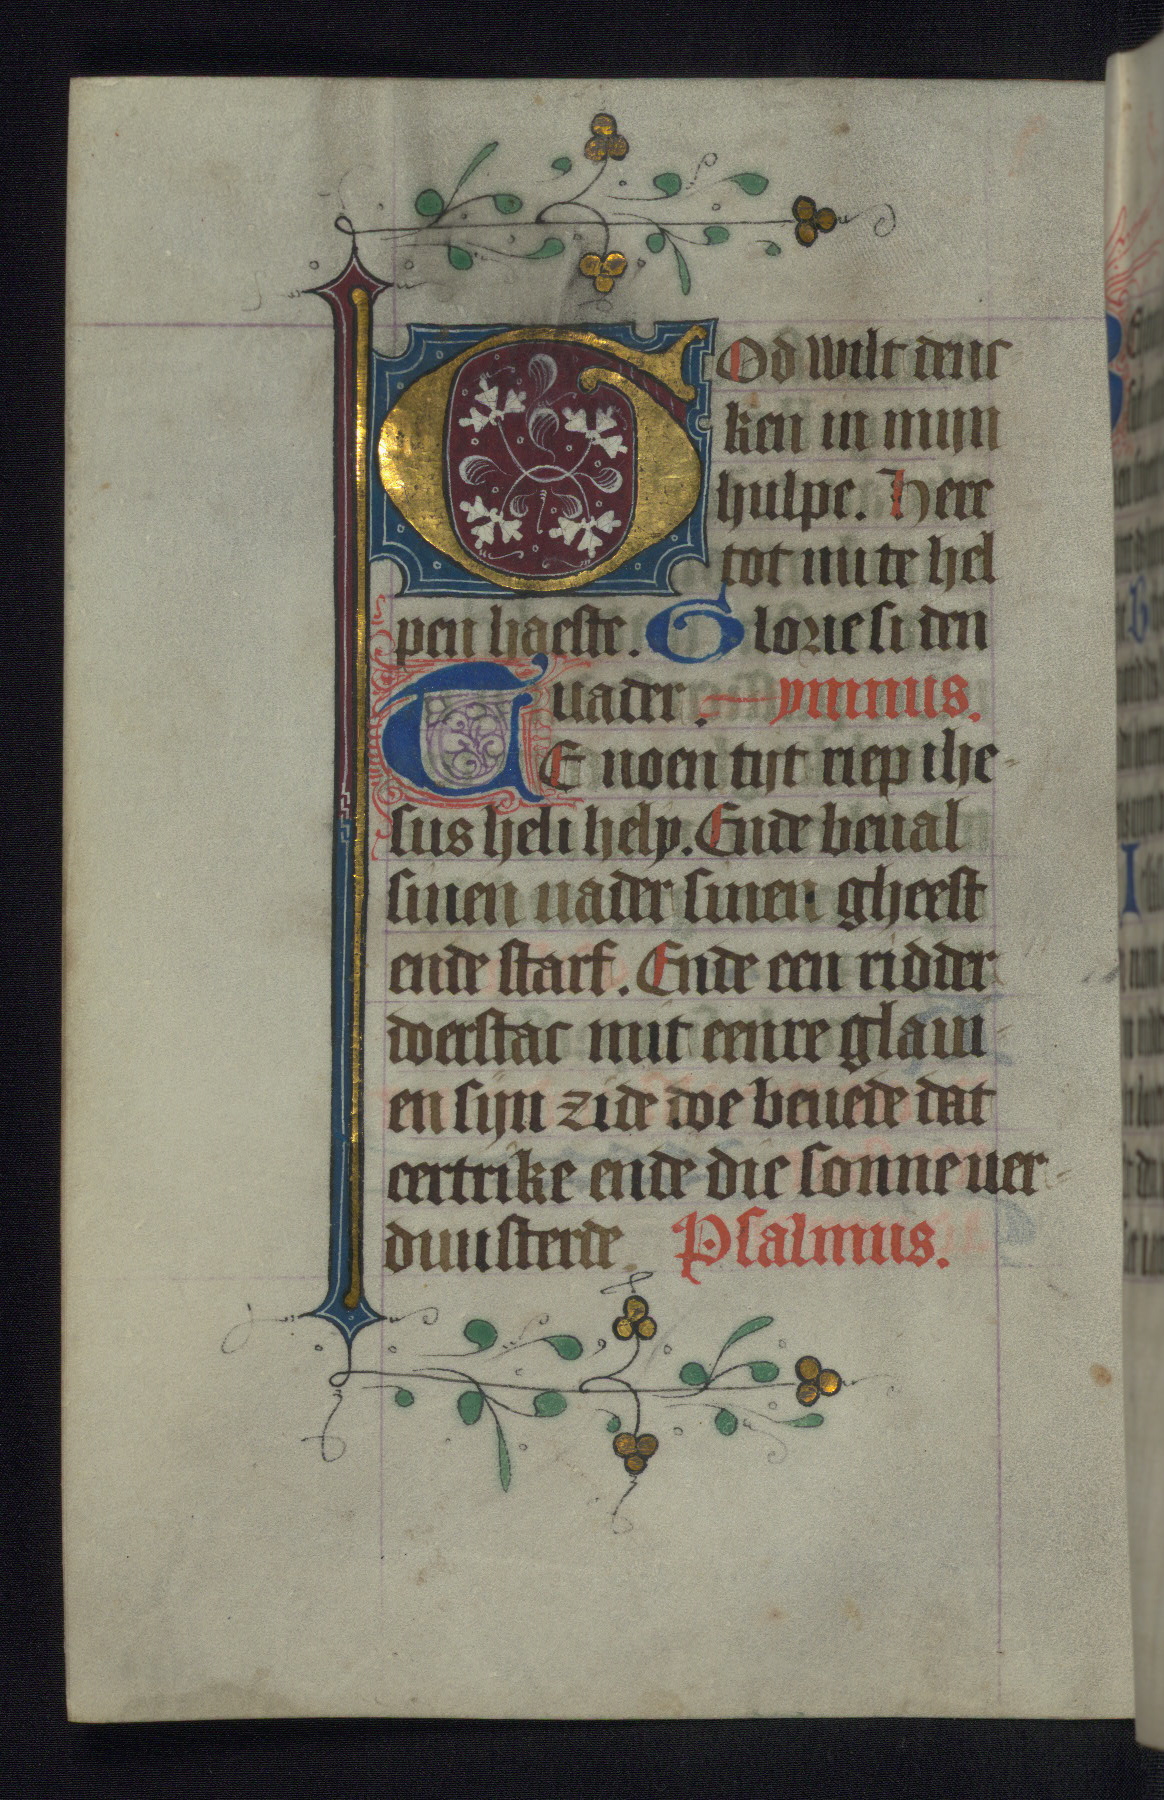 GOd wilt denc
ken in mijn
hulpe. Here
tot mi te hel
pen haeste. Glorie si den
uader. ymnus.
TE noen tijt riep ihe-
sus heli hely. Ende beual
sinen uader sinen gheest
ende starf. Ende een ridder
doerstac mit eenre glaui-
en sijn zide doe beuede dat
eertrike ende die sonne uer-
duusterde. Psalmus.